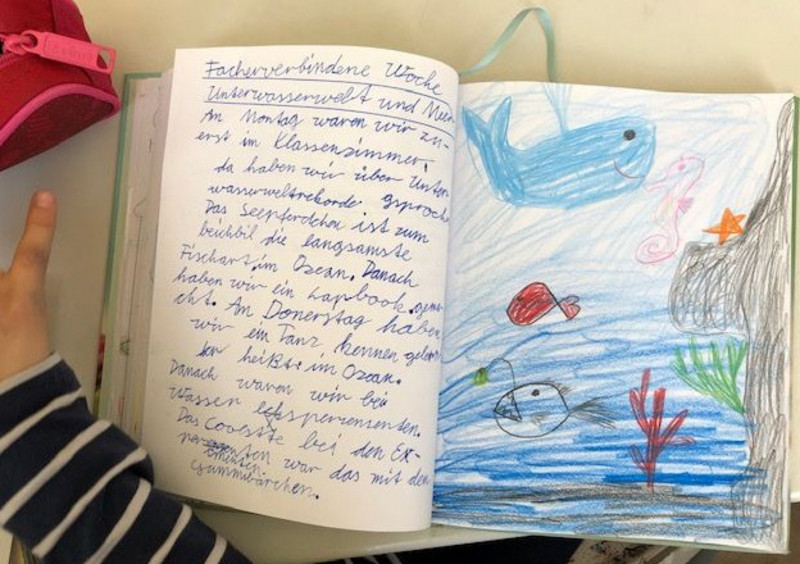 Fächerverbindene Woche
Unterwasserwelt und Meer
Am Montag waren wir zu-
erst im Klassenzimmer,
da haben wir über Unter-
wasserweltrekorde gsproch
Das Seepferdchen ist zum
beichbil die langsamste
Fischart im Ozean. Danach
haben wir ein Lapbook gema-
cht. Am Donerstag haben
wir ein Tanz kennen gelernt
der heißt im Ozean.
Danach waren wir bei
Wasser
Das Coolste bei den Ex-
perimenten war das mit den
Gummibärchen.